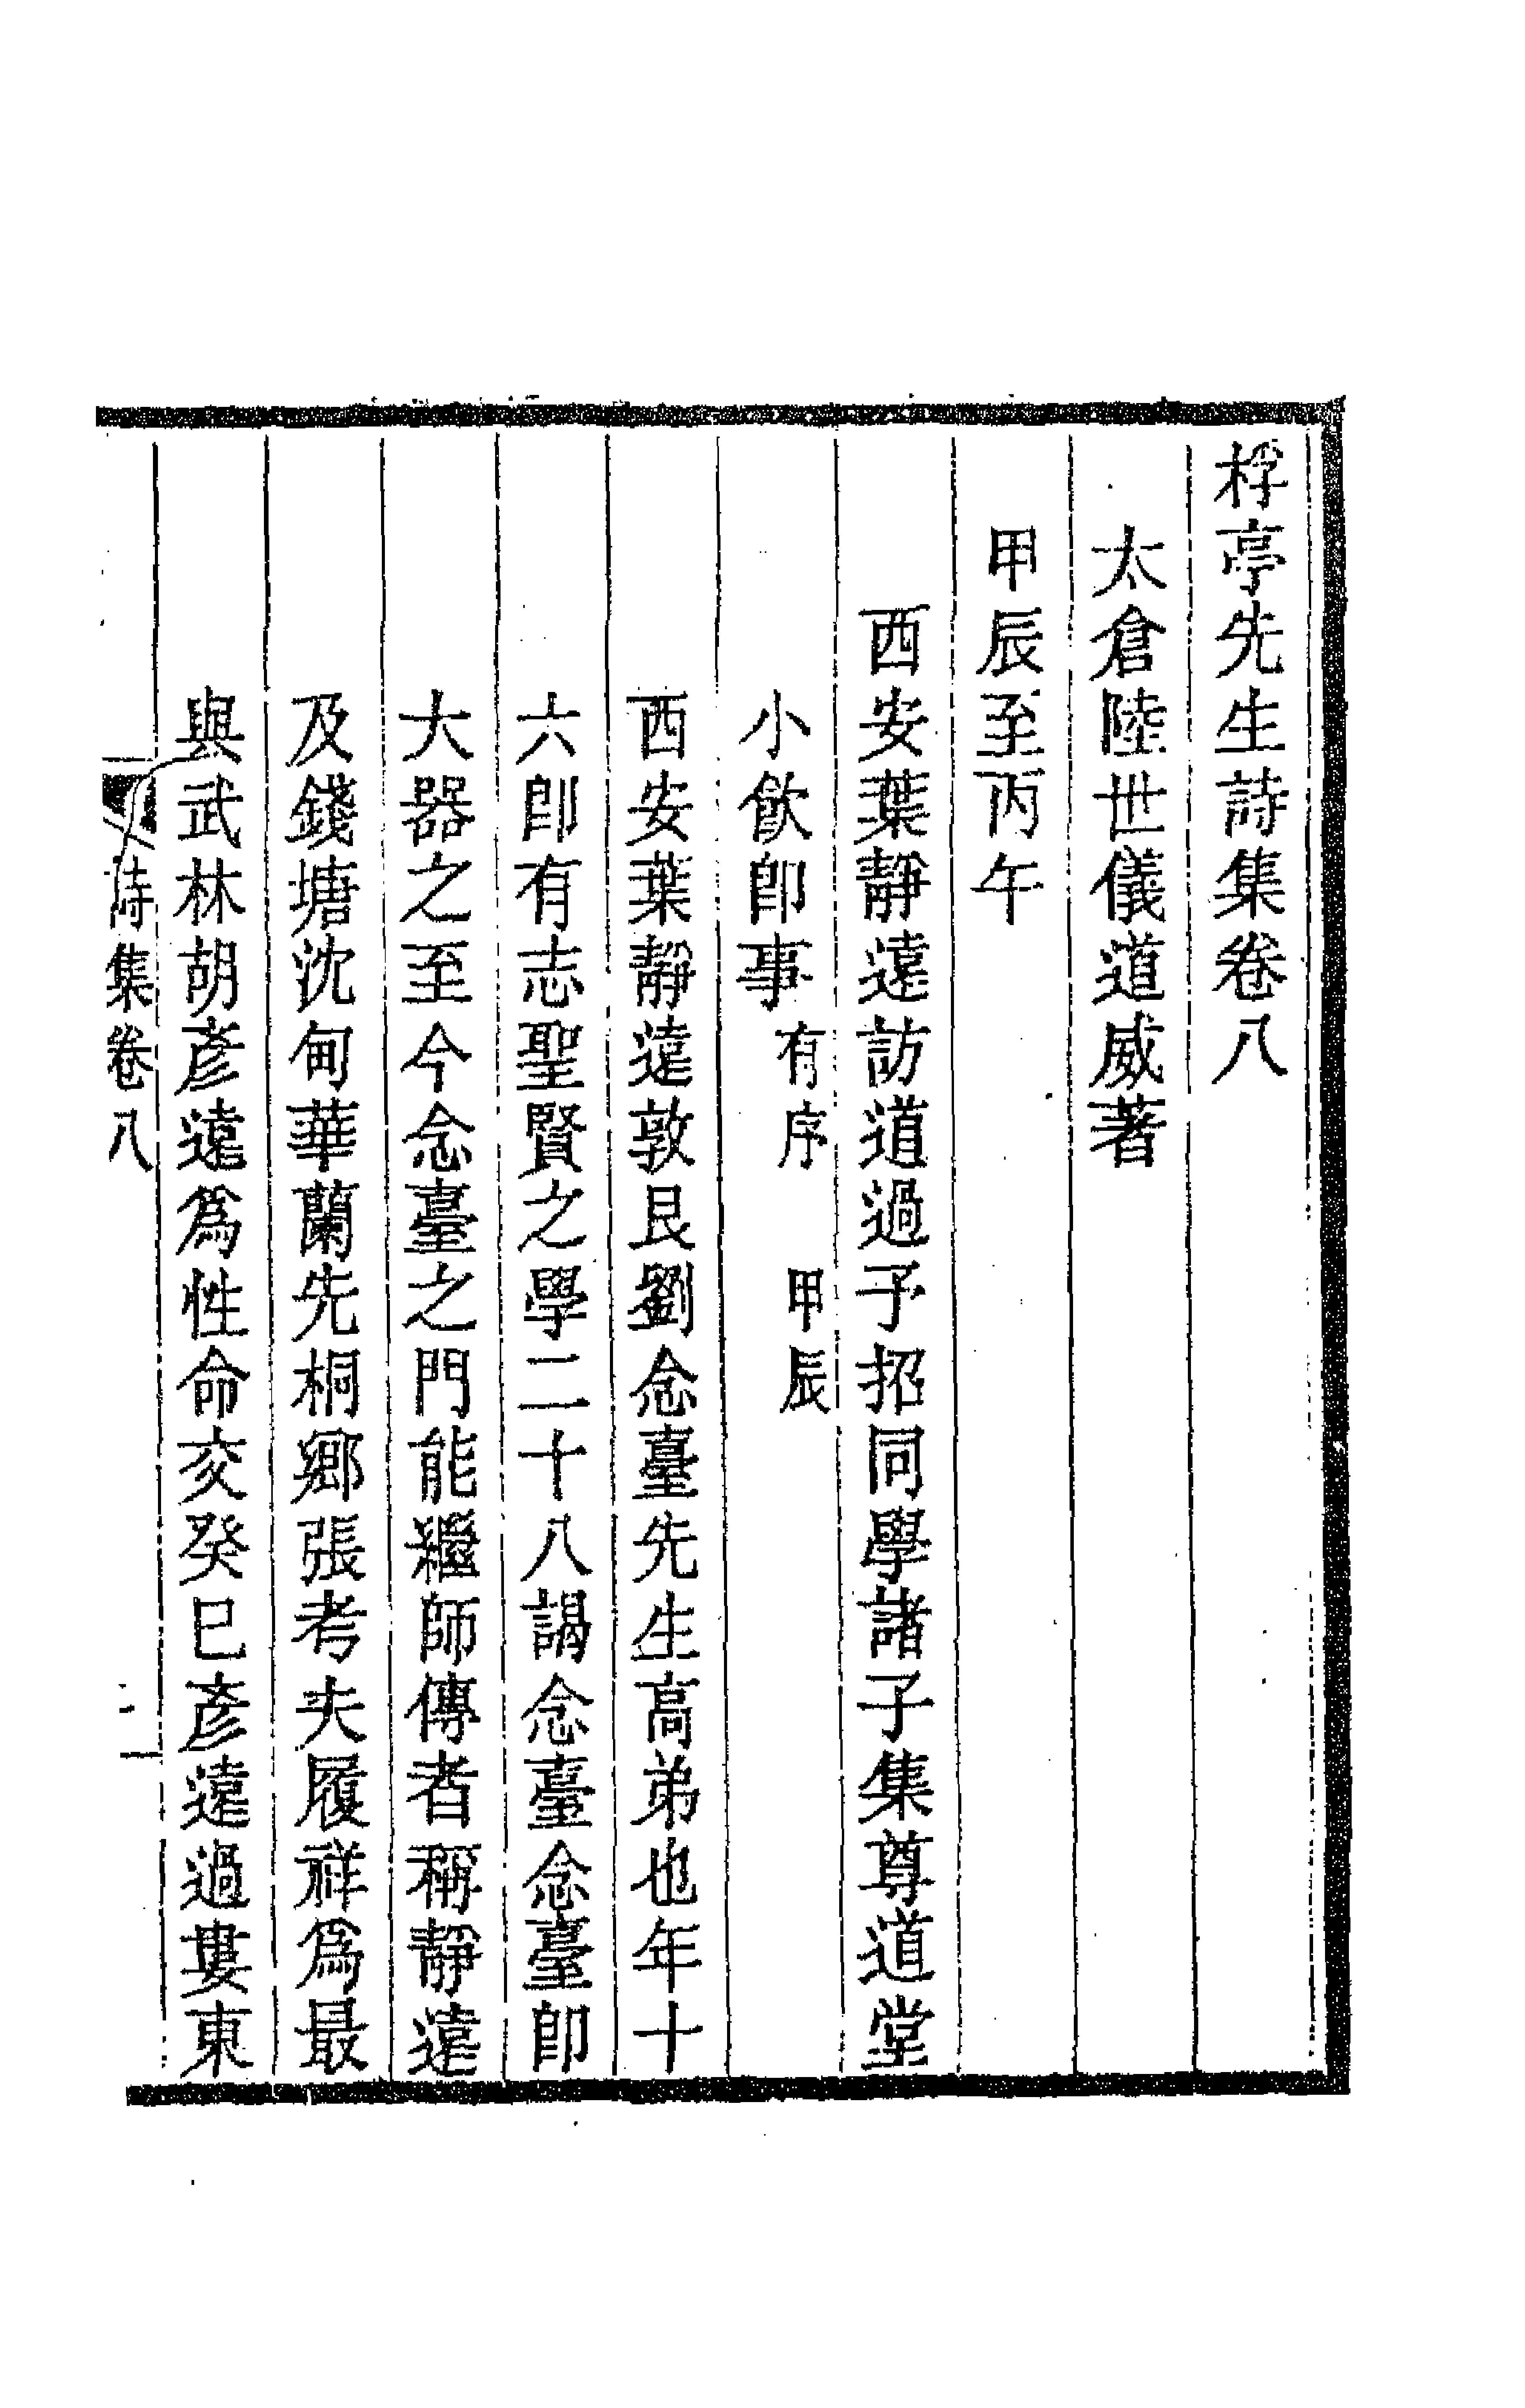 桴亭先生詩集卷八
太倉陸世儀道威著
甲辰至丙午
西安葉靜遠訪道過予招同學諸子集尊道堂
小飲卽事 有序 甲辰
西安葉靜遠敦艮劉念臺先生高弟也年十
六卽有志聖賢之學二十八謁念臺念臺卽
大器之至今念臺之門能繼師傳者稱靜遠
及錢塘沈甸華蘭先桐鄉張考夫履祥爲最
與武林胡彥遠爲性命交癸巳彥遠過婁東
詩集卷八
一